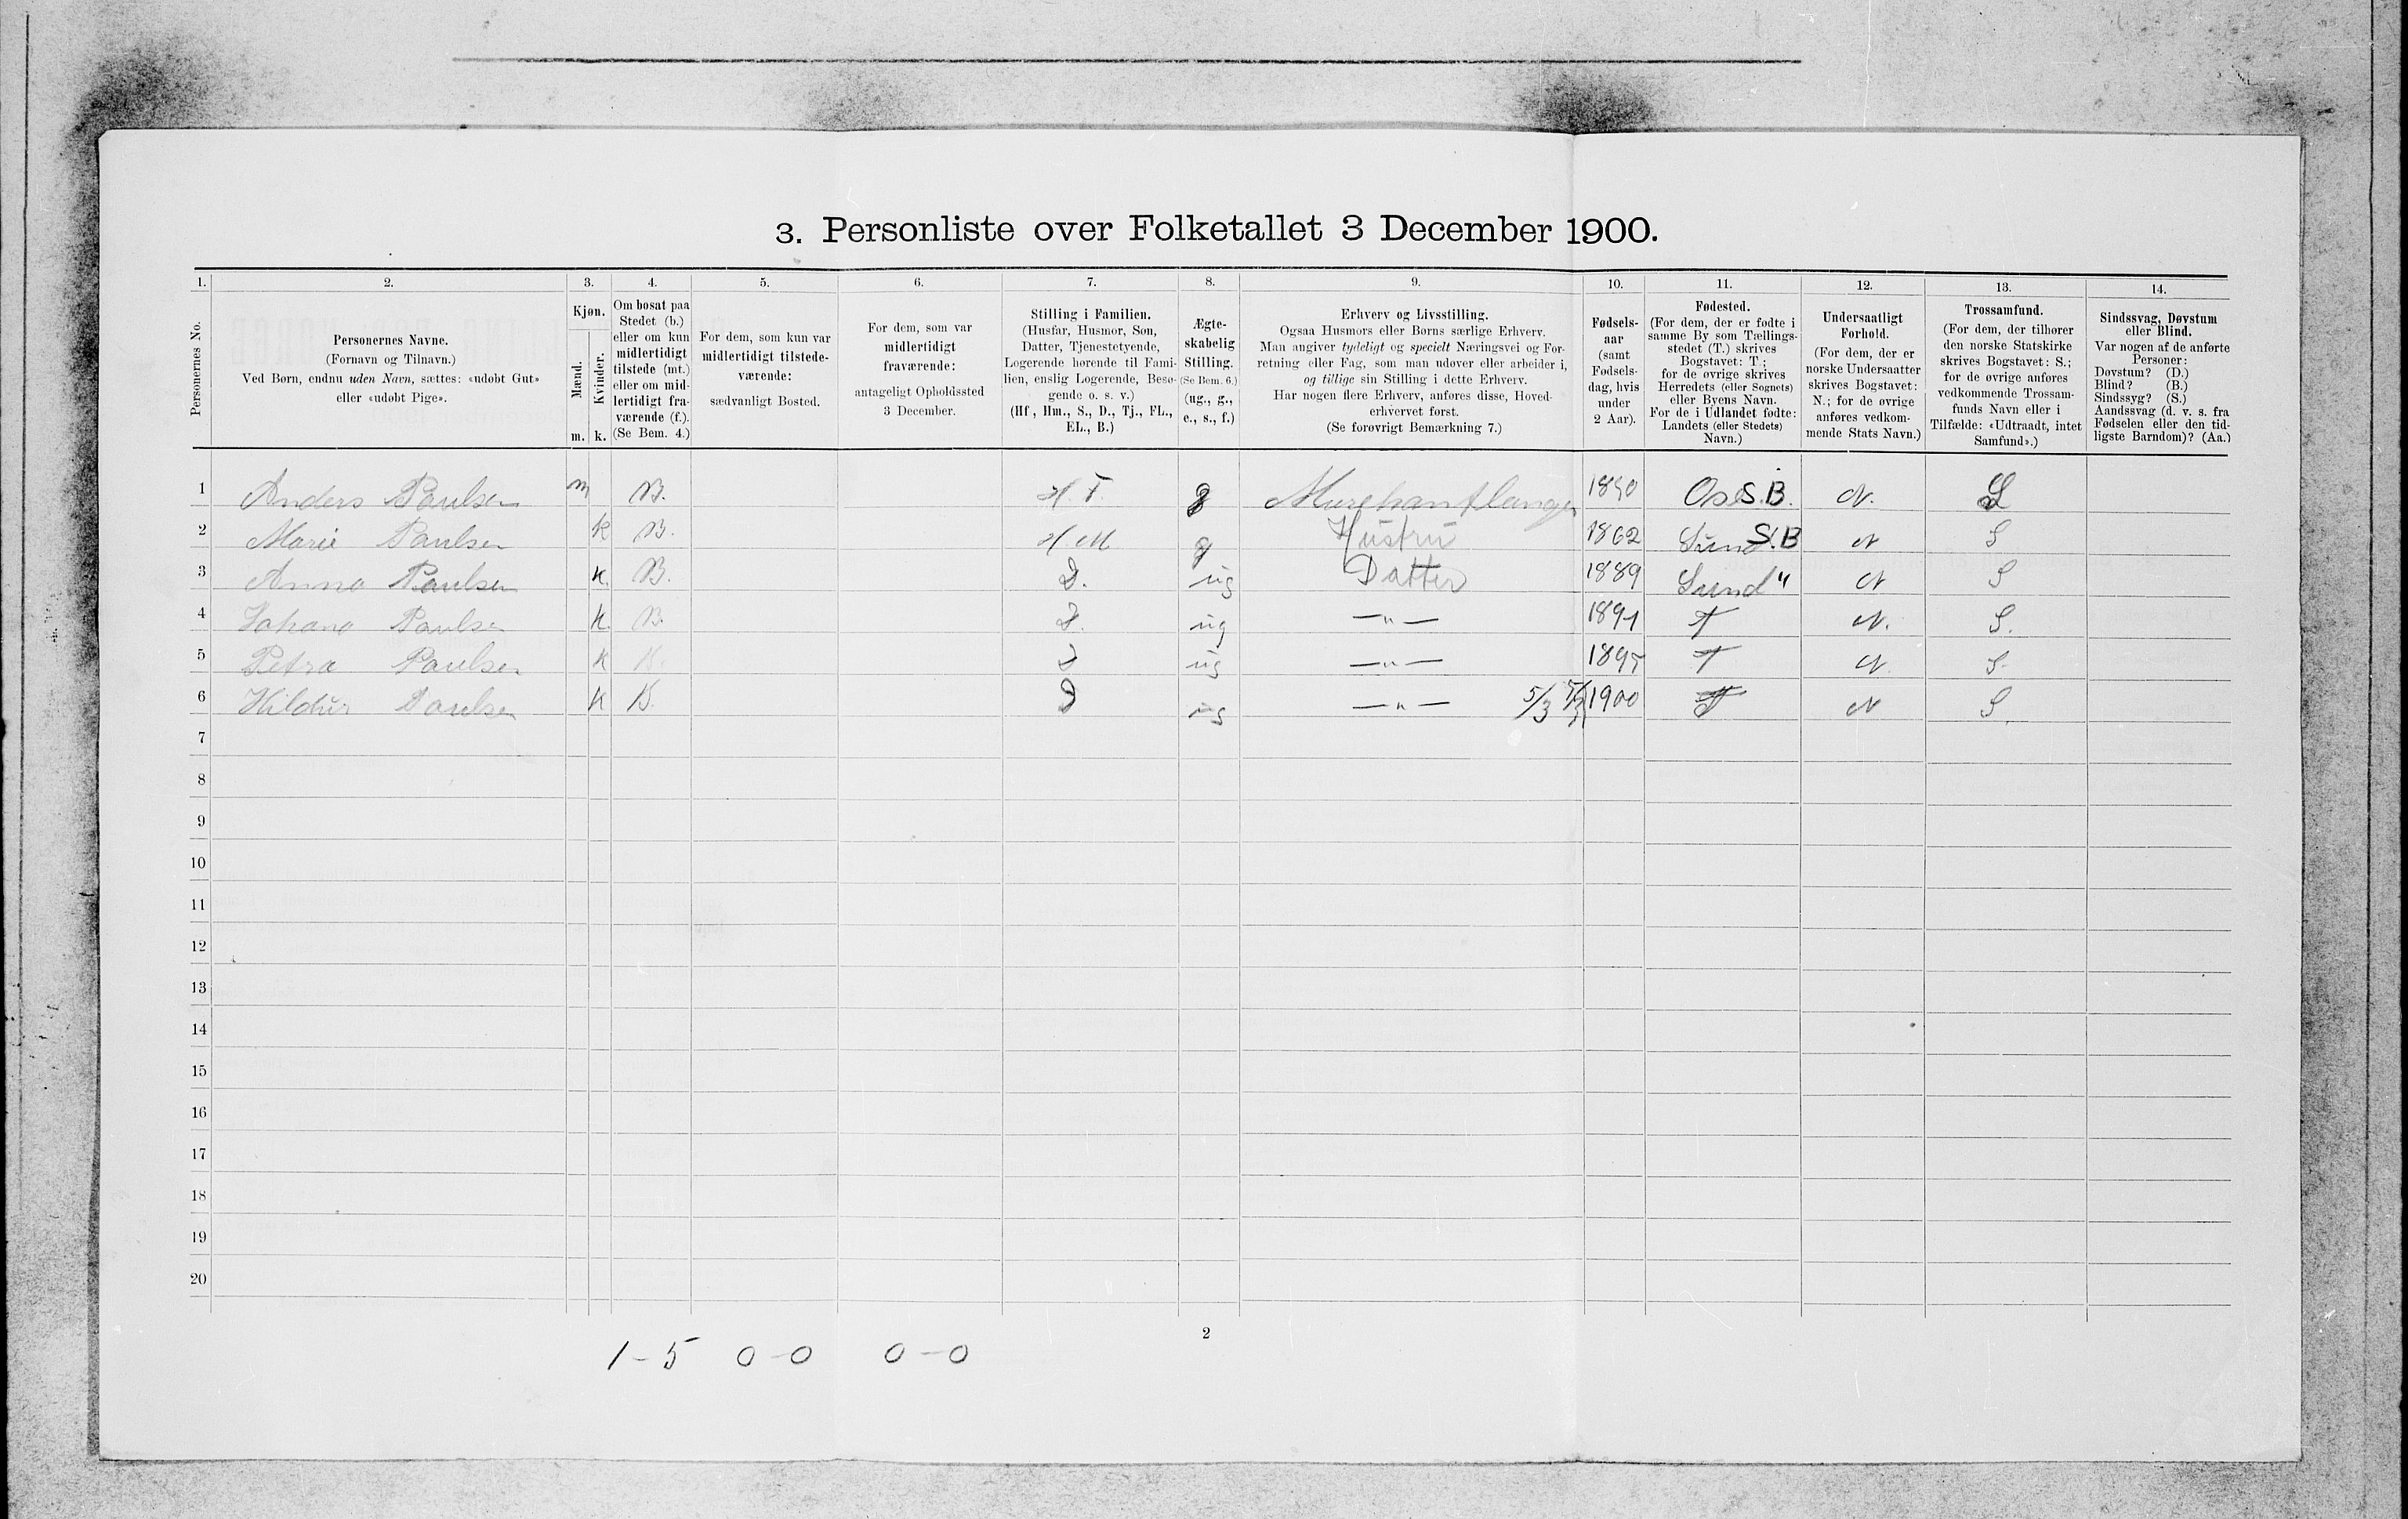 3. Personliste over Folketallet 3 December 1900.
1. 2. 3. 4. 5. 6. 7. 8. 9. 10. 11. 12. 13. 14.
Personernes No.
Personernes Navne.
(Fornavn og Tilnavn.)
Ved Børn, endnu uden Navn, sættes: «udøbt Gut»
eller «udøbt Pige».
Kjøn.
Mænd.
Kvinder.
m. k.
Om bosat paa
Stedet (b.)
eller om kun
midlertidigt
tilstede (mt.)
eller om mid-
lertidigt fra-
værende (f.).
(Se Bem. 4.)
For dem, som kun var
midlertidigt tilstede-
værende:
sædvanligt Bosted.
For dem, som var
midlertidigt
fraværende:
antageligt Opholdssted
3 December.
Stilling i Familien.
(Husfar, Husmor, Søn,
Datter, Tjenestetyende,
Logerende hørende til Fami-
lien, enslig Logerende, Besø-
gende o. s. v.)
(Hf, Hm., S., D., Tj., FL.,
EL., B.)
Ægte-
skabelig
Stilling.
(Se Bem. 6.)
(ug., g.,
e., s., f.)
Erhverv og Livsstilling.
Ogsaa Husmors eller Børns særlige Erhverv.
Man angiver tydeligt og specielt Næringsvei og For-
retning eller Fag, som man udøver eller arbeider i,
og tillige sin Stilling i dette Erhverv.
Har nogen flere Erhverv, anføres disse, Hoved-
erhvervet først.
(Se forøvrigt Bemærkning 7.)
Fødsels-
aar
(samt
Fødsels-
dag, hvis
under
2 Aar).
Fødested.
(For dem, der er fødte i
samme By som Tællings-
stedet (T.) skrives
Bogstavet: T.;
for de øvrige skrives
Herredets (eller Sognets)
eller Byens Navn.
For de i Udlandet fødte:
Landets (eller Stedets)
Navn.)
Undersaatligt
Forhold.
(For dem, der er
norske Undersaatter
skrives Bogstavet:
N.; for de øvrige
anføres vedkom-
mende Stats Navn.)
Trossamfund.
(For dem, der tilhører
den norske Statskirke
skrives Bogstavet: S.;
for de øvrige anføres
vedkommende Trossam-
funds Navn eller i
Tilfælde: «Udtraadt, intet
Samfund».)
Sindssvag, Døvstum
eller Blind.
Var nogen af de anførte
Personer:
Døvstum? (D.)
Blind? (B.)
Sindssyg? (S.)
Aandssvag (d. v. s. fra
Fødselen eller den tid-
ligste Barndom)? (Aa.)
1 Anders Paulsen m B. H. F. g Os S.B. N. S
2 Marie Paulsen k B. H M g Hustru 1862 Sund S.B N S
3 Anna Paulsen k. B. D. ug Datter 1889 Sund " N S
4 Johana Paulsen k. B. D. ug —"— 1891 T N. S.
5 Petra Paulsen k B. D ug —"— 1895 T N. S.
6 Hildur Paulsen k B. D ug —"— 5/3 5/3 1900 T N S.
7
8
9
10
11
12
13
14
15
16
17
18
19
20
2
1-5 0-0 0-0